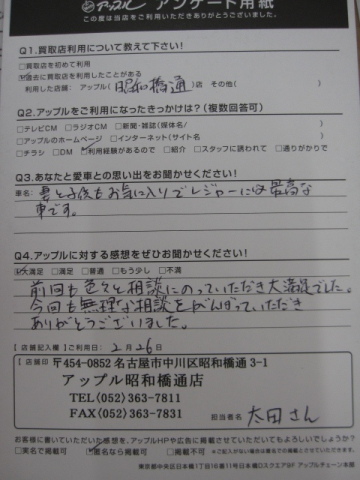 アップル アンケート用紙
この度は当店をご利用いただきありがとうございました。
Q1.買取店利用について教えて下さい!
□買取店を初めて利用
☑過去に買取店を利用したことがある
利用した店舗: アップル(昭和橋通)店 その他( )
Q2.アップルをご利用になったきっかけは?(複数回答可)
□テレビCM □ラジオCM □新聞・雑誌(媒体名/ )
□アップルのホームページ □インターネット(サイト名 )
□チラシ □DM ☑利用経験があるので □紹介 □スタッフに誘われて □通りがかりで
Q3.あなたと愛車との思い出をお聞かせください!
車名: 妻と子供もお気に入りでレジャーには最高な
車です。
Q4.アップルに対する感想をぜひお聞かせください!
☑大満足 □満足 □普通 □もう少し □不満
前回も色々と相談にのっていただき大満足でした。
今回も無理な相談をがんばっていただき
ありがとうございました。
【店舗記入欄】ご利用日: 2月26日
【店舗印】 〒454-0852 名古屋市中川区昭和橋通3-1
アップル昭和橋通店
TEL(052)363-7811
FAX(052)363-7831
担当者名 太田さん
お客様に書いていただいた感想を、アップルHPや広告に掲載させていただいてもよろしいでしょうか?
□実名で掲載可 ☑匿名なら掲載可 □掲載不可 ※ご記入がない場合は匿名で掲載させていただく場合がございます。
東京都中央区日本橋1丁目16番11号日本橋Dスクエア9F アップルチェーン本部